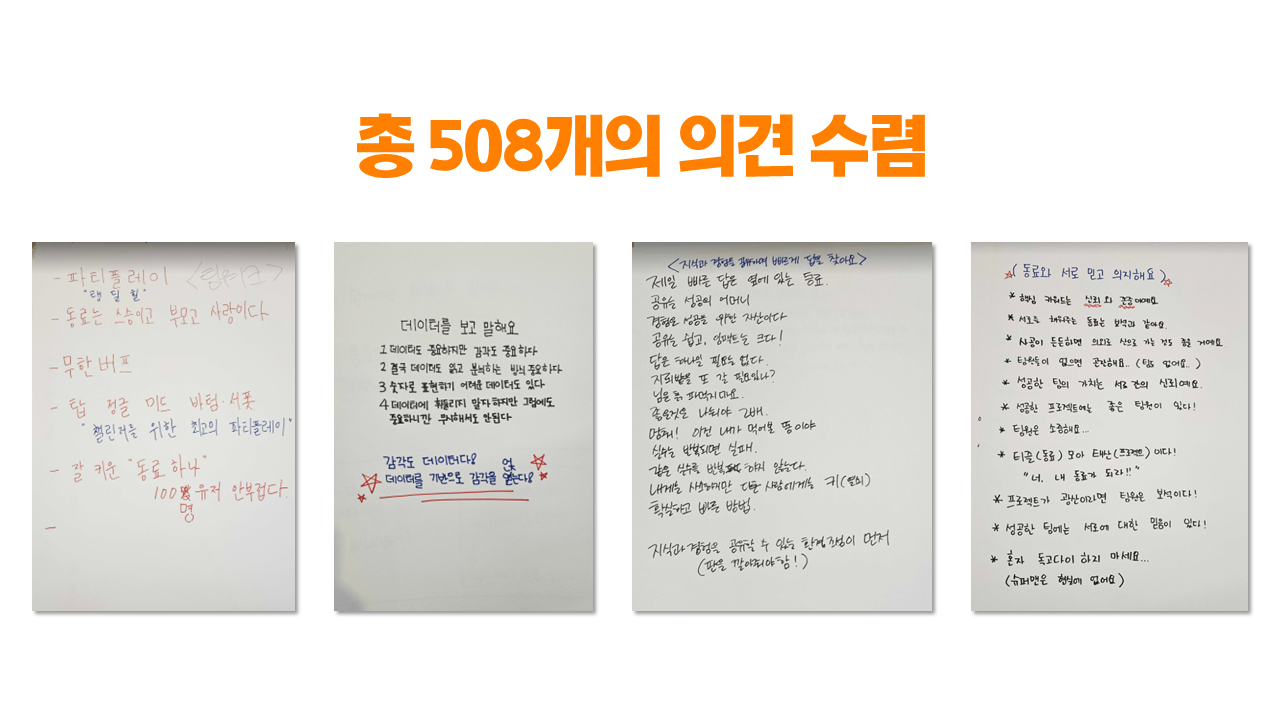 총 508개의 의견 수렴
- 파티플레이 <팀워크>
"탱 딜 힐"
- 동료는 스승이고 부모고 사랑이다
- 무한버프
- 탑 정글 미드 바텀·서폿
"챌린저를 위한 최고의 파티플레이"
- 잘 키운 "동료 하나"
100명 유저 안부럽다.
-
데이터를 보고 말해요
1 데이터도 중요하지만 감각도 중요하다
2 결국 데이터도 읽고 분석하는 방식 중요하다
3 숫자로 표현하기 어려운 데이터도 있다
4 데이터에 휘둘리지 말자 하지만 그럼에도
중요하니깐 무시해서도 안된다
감각도 데이터다!
데이터를 기반으로 감각을 얹는다!
<지식과 경험을 공유하며 빠르게 답을 찾아요>
제일 빠른 답은 옆에 있는 동료.
공유는 성공의 어머니
경험은 성공을 위한 자산이다
공유는 쉽고, 임팩트는 크다!
답은 하나일 필요는 없다.
지뢰밭을 또 갈 필요있나?
님은 좀 파먹지마요.
좋은것은 나눠야 2배.
멈춰! 이건 내가 먹어본 똥이야
실수는 반복되면 실패.
같은 실수를 반복 하지 않는다.
내게는 사소하지만 다른 사람에게는 키(열쇠)
확실하고 빠른 방법.
지식과 경험을 공유할 수 있는 환경조성이 먼저
(판을 깔아줘야함!)
(동료와 서로 믿고 의지해요)
* 핵심 키워드는 신뢰와 존중이에요
* 서로를 채워주는 동료는 보석과 같아요.
* 사공이 든든하면 의외로 산으로 가는 것도 좋을 거에요.
* 팀원들이 없으면 곤란해요.. (팀도 없어요..)
* 성공한 팀의 가치는 서로 간의 신뢰예요.
* 성공한 프로젝트에는 좋은 팀원이 있다!
* 팀원은 소중해요...
* 티끌(동료) 모아 태산(프로젝트)이다!
"너, 내 동료가 되라!!"
* 프로젝트가 광산이라면 팀원은 보석이다!
* 성공한 팀에는 서로에 대한 믿음이 있다!
* 혼자 독고다이 하지 마세요...
(슈퍼맨은 현실에 없어요)